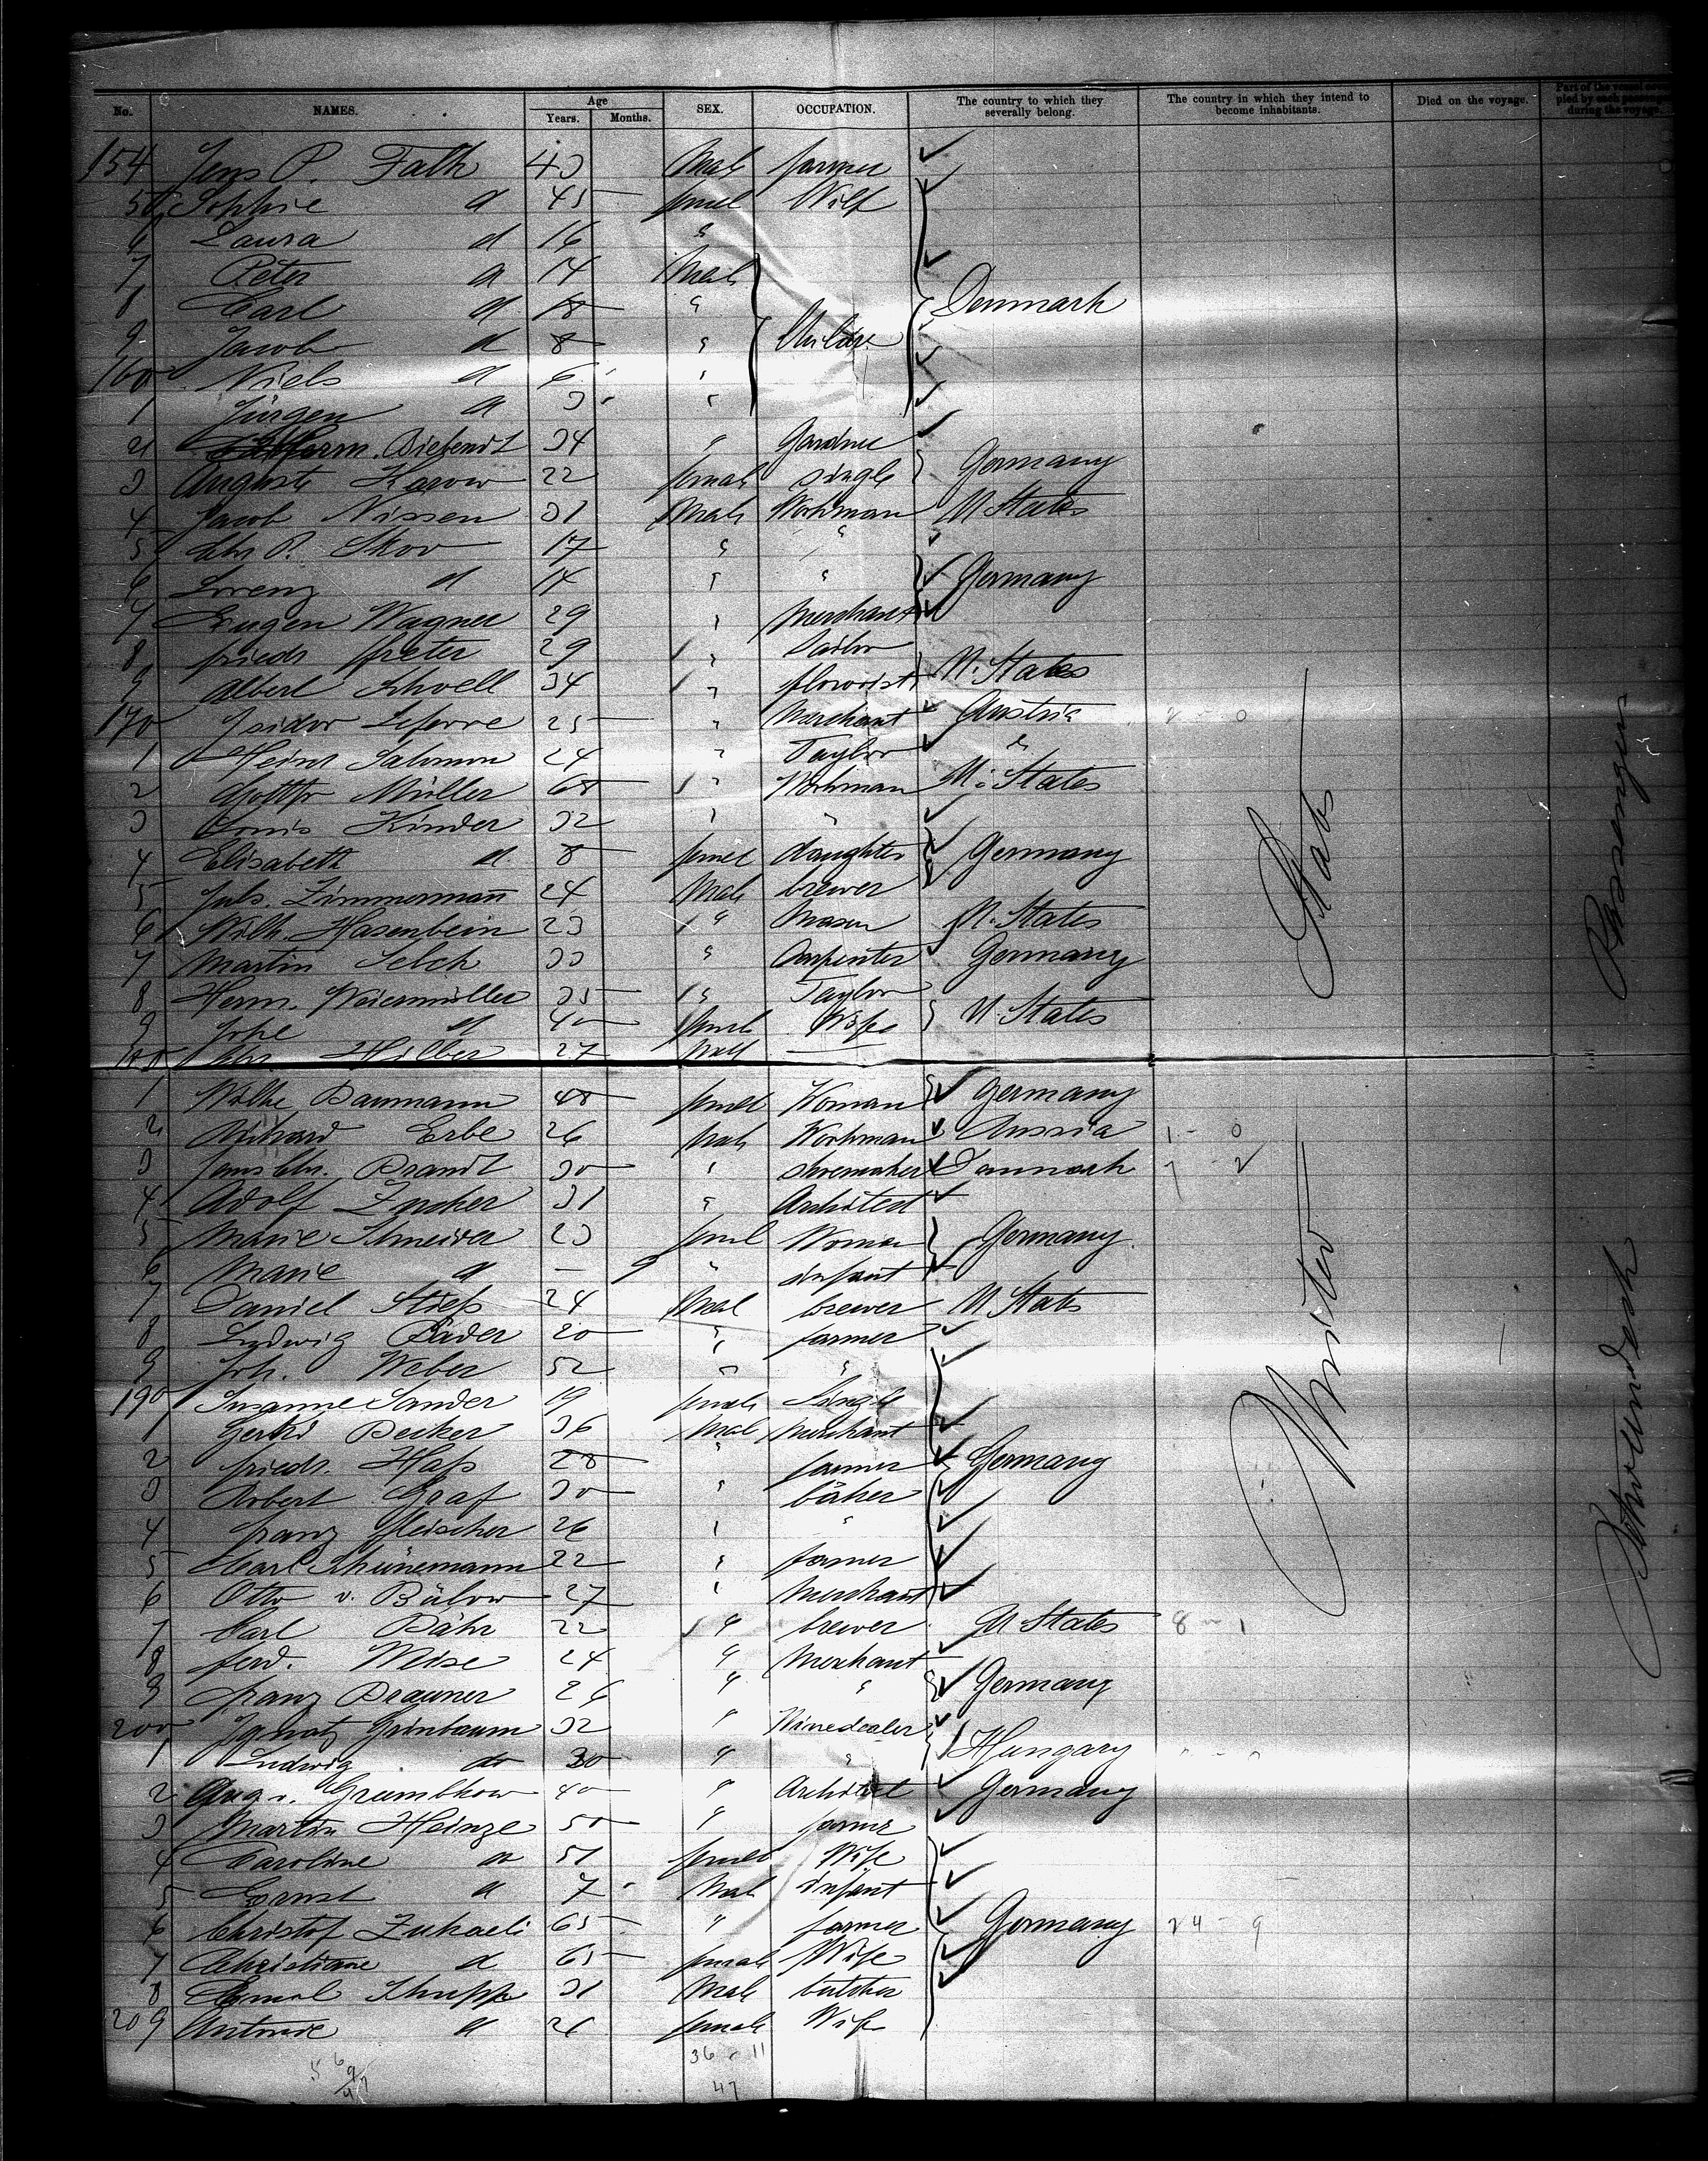 No. NAMES. Age Years. Months. SEX. OCCUPATION. The country to which they severally belong. The country in which they intend to become inhabitants. Died on the voyage. Part of the vessel occupied by each passenger during the voyage.
154 Jens P. Falk 43 Male farmer
5 Sophie d 45 femel Wife
6 Laura d 16 "
7 Peter d 14 Male
8 Carl d "
9 Jacob d 8 " Denmark
160 Niels d 6 "
1 Jürgen d 3 "
2 Herm. 34 " Gardner
3 Auguste Karow 22 female single Germany
4 Jacob Nissen 31 Male Workman U States
5 Chr. P. Skov 17 " "
6 Lorenz d 14 " " Germany
7 Eugen Wagner 29 " Merchant
8 friedr. 29 " Sailor
9 Albert Scholl 34 " U. States
170 Isidor 25 " Merchant Austria 2 - 0
1 Heinr Salomon 24 " Taylor "
2 Gottfr Müller 68 " Workman U. States
3 Louis Kinder 32 " "
4 Elisabeth d 8 femel daughter Germany
5 Juls. Zimmermann 24 Male brewer
6 Wilh. Hasenbein 23 " Mason U. States
7 Martin Selch 33 " Carpenter Germany
8 Herm. Weiermüller 35 " Taylor
9 Johe d 40 femel Wife U. States
180 Chr. Hilber 27 male
1 Wilhe Baumann 48 femel Woman Germany
2 Richard Erbe 26 Male Workman Russia 1 - 0
3 Jens Chr. Brandt 30 " Shoemaker Danmark
4 Adolf 31 " Architect
5 Marie Schneider 23 femel Woman Germany
6 Marie d — 9 " infant
7 Daniel Stiefs 24 Mal brewer U. States
8 Ludwig Bader 20 " farmer
9 Joh. Weber 52 " "
190 Susanne Sander 19 female Single
1 Becker 36 Mal Merchant
2 friedr. Hafs 28 " farmer Germany
3 Robert Graf 30 " bäker
4 franz fleischer 26 " "
5 Carl Schünemann 22 " farmer
6 Otto v. Bülow 27 " Merchant
7 Carl Bähr 22 " brewer U States 8 - 1
8 ferd. Weise 24 " Merchant
9 franz Brauner 26 " " Germany
200 Ignatz Grünbaum 32 " Winedealer
1 Ludwig do 30 " " Hungary
2 Aug v. Grumbkow 40 " Architect Germany
3 Martin Heinze 50 " farmer
4 Caroline do 51 femel Wife
5 Ernst d 7 Mal infant
6 Christof 65 " farmer Germany 24 - 9
7 Christiane d 65 female Wife
8 31 Male butcher
209 Antonie d 26 female Wife
36 - 11
47
States
Passengers